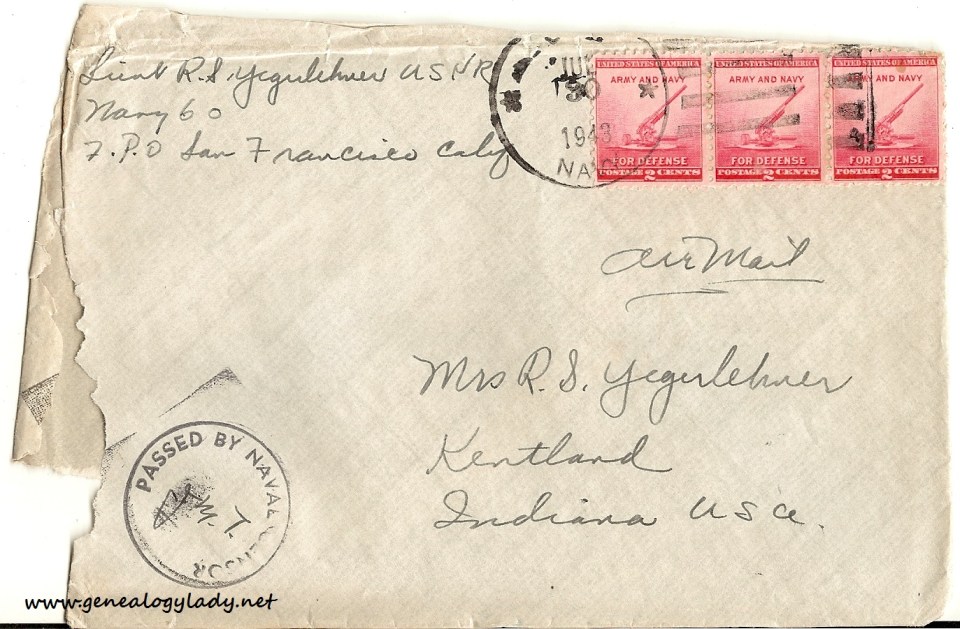 Lieut R.S. Yegerlehner USNR
Navy 60
F.P.O San Francisco Caly
30
1943
NAVY
UNITED STATES OF AMERICA
ARMY AND NAVY
FOR DEFENSE
POSTAGE 2 CENTS
UNITED STATES OF AMERICA
ARMY AND NAVY
FOR DEFENSE
POSTAGE 2 CENTS
UNITED STATES OF AMERICA
ARMY AND NAVY
FOR DEFENSE
POSTAGE 2 CENTS
Air Mail
Mrs R.S. Yegerlehner
Kentland
Indiana USA.
PASSED BY NAVAL CENSOR
www.genealogylady.net